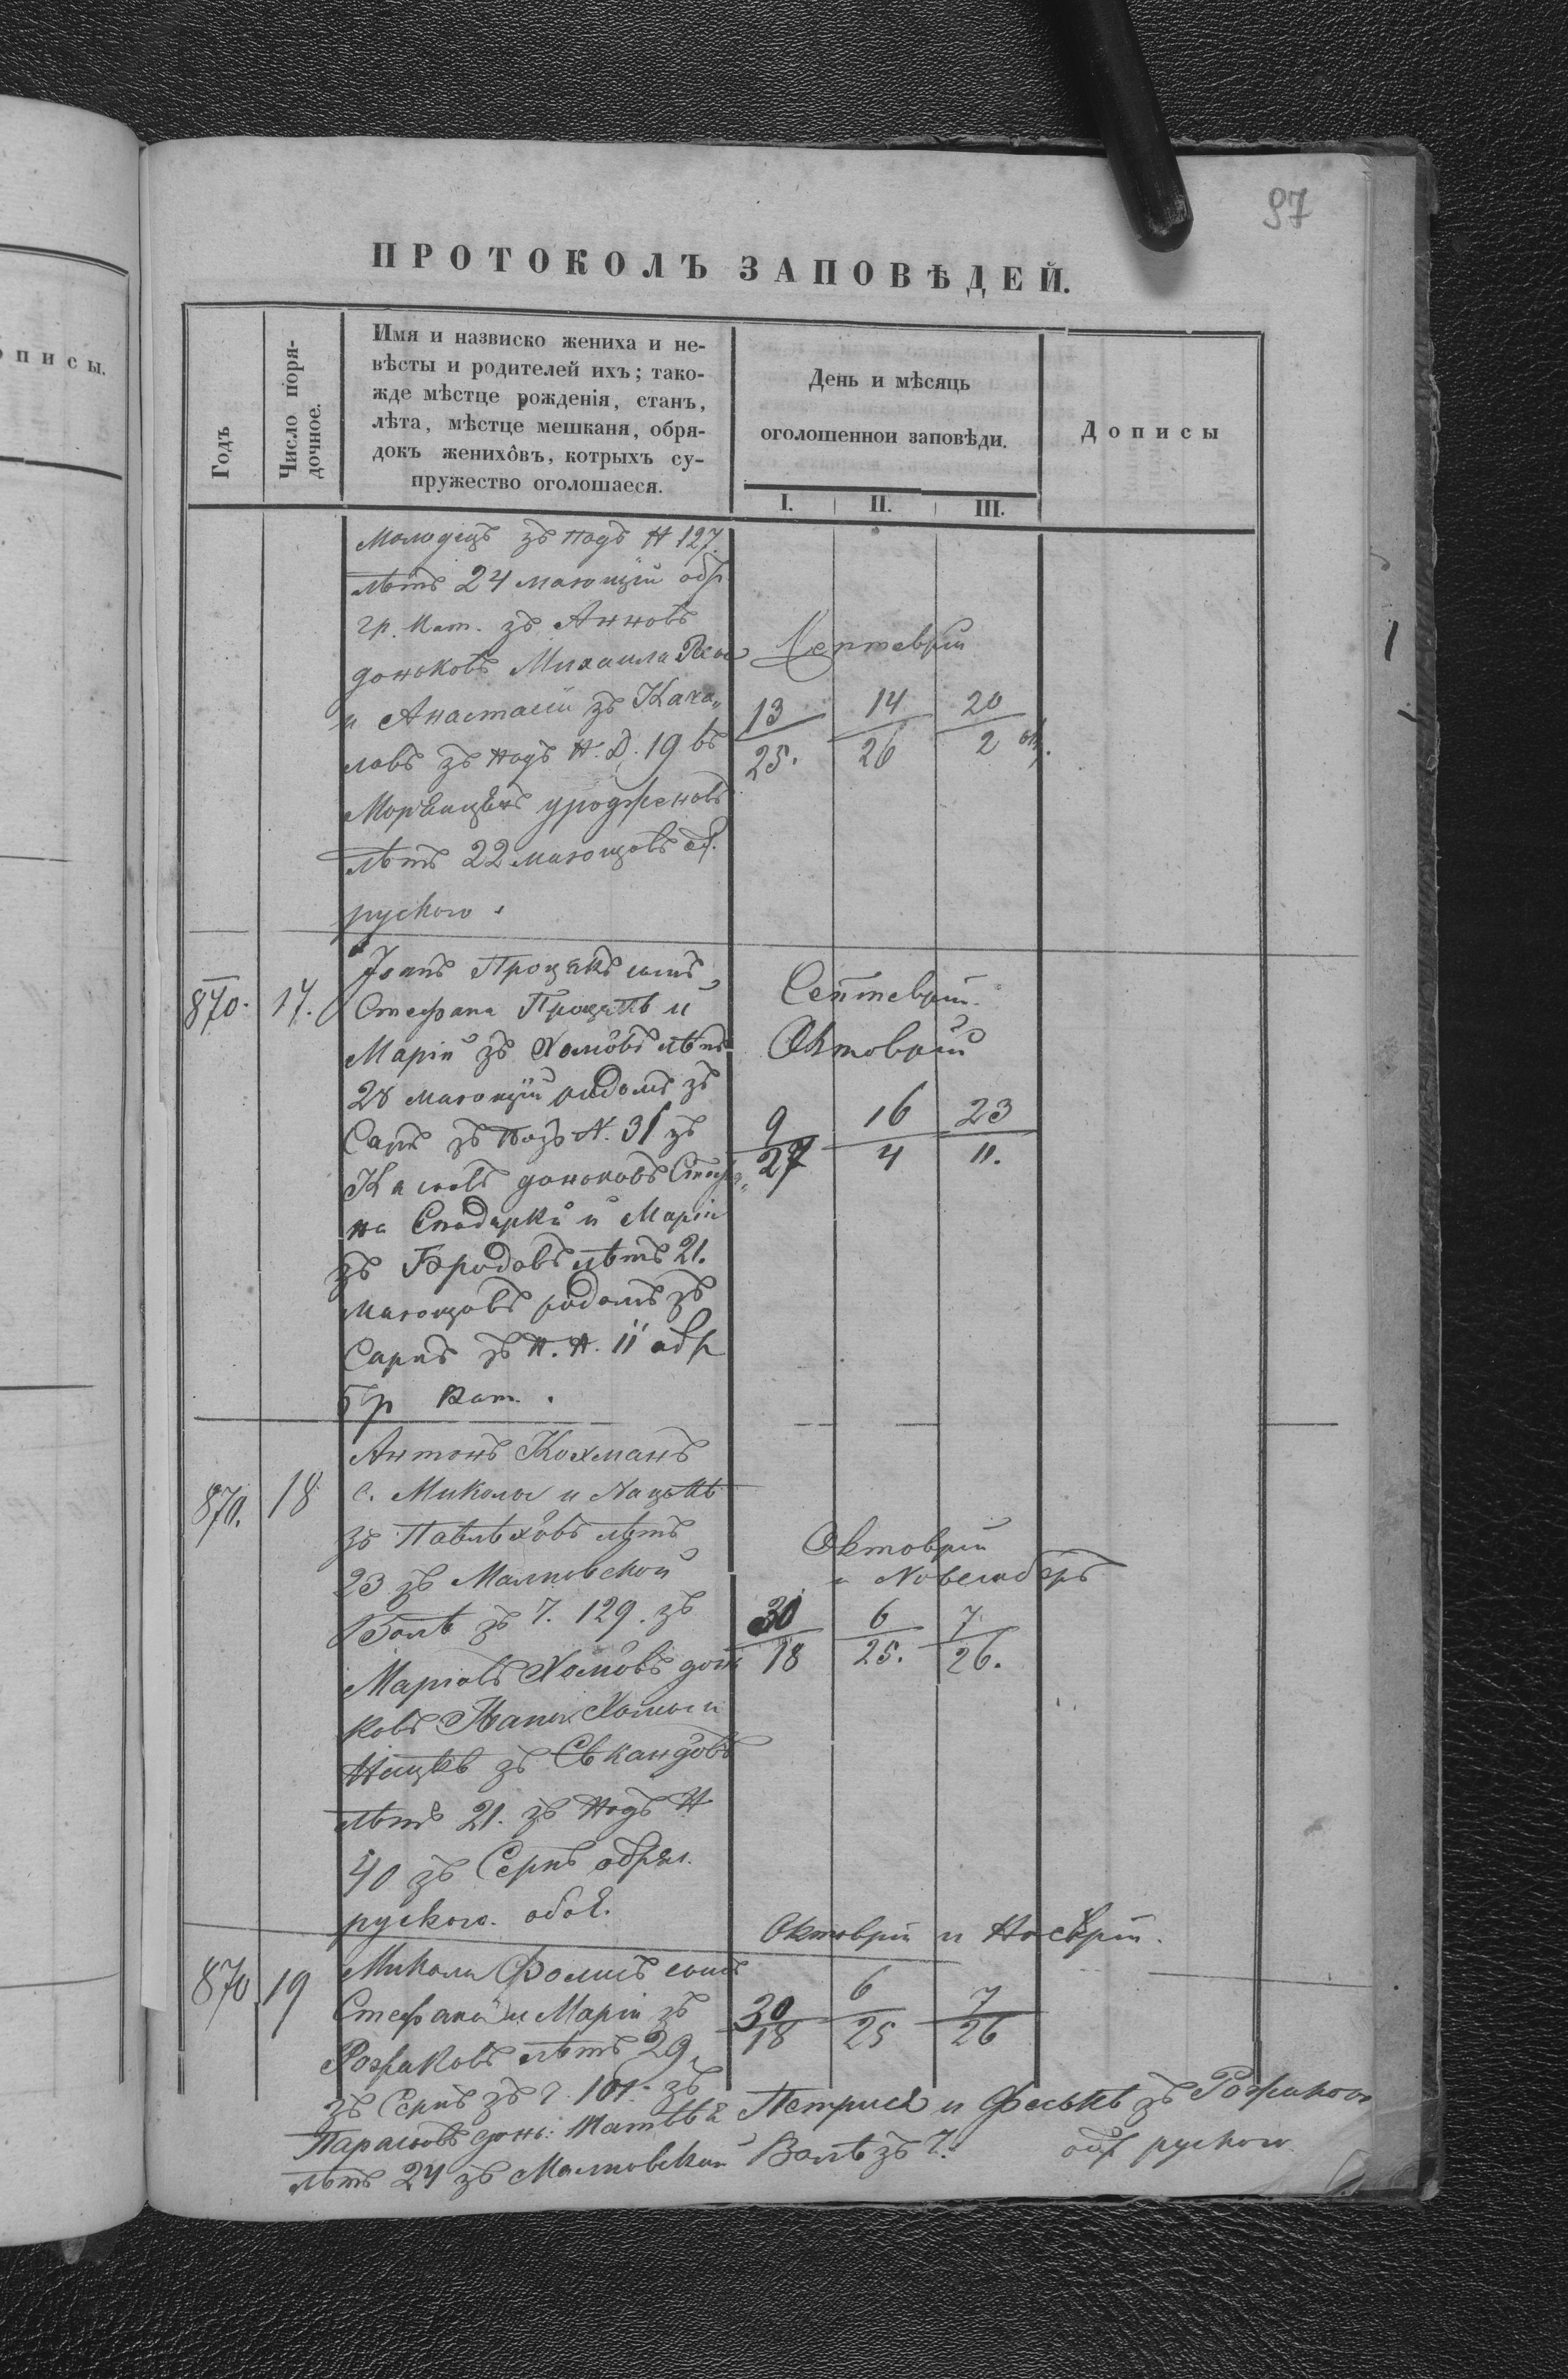 97
ПРОТОКОЛЪ ЗАПОВѢДЕЙ.
описы.
Годъ
Число поря-
дочное.
Имя иназвиско жениха и не-
вѣсты и родителей ихъ; тако-
жде мѣстце рожденія, станъ,
лѣта, мѣстце мешканя, обря-
докъ женихôвъ, котрыхъ су-
пружество оголошаеся.
День и мѣсяць
оголошеннои заповѣди.
I. II. III.
Дописы
Молодецъ зъ подъ Н 127.
лѣтъ 24 мающій обр
гр. кат. зъ Анновъ
доньковъ Михаила
и Анастасіи зъ Каха„
ловъ зъ подъ Н. D. 19 въ
урожденовъ
лѣтъ 22 мающовъ об.
руского.
Септеврій
13 14 20
25. 26 2
870. 17.
Іоанъ Процякъ сынъ
Стефана Процякъ и
Маріи зъ Хомôвъ лѣтъ
28 маючій родомъ зъ
зъ подъ N. 31 зъ
Касковъ доньковъ Стефа„
на и Маріи
зъ Бродовъ лѣтъ 21.
мающовъ родомъ зъ
зъ п. Н. 11 обр
Гр Кат.
Септеврій.
Октоврій
9 16 23
27 4 11.
870. 18
Антонъ Кохманъ
с. Миколы и Нацькѣ
зъ Павлѣхôвъ лѣтъ
23 зъ Малновской
Волѣ зъ ч. 129. зъ
Маріовъ Хомôвъ донь
ковъ Хомы и
Нацькѣ зъ
лѣтъ 21. зъ подъ Н
40 зъ обряд.
руского. обоє.
Октоврій
и Новемберъ
30 6 7
18 25. 26.
870 19
Микола Фолисъ сынъ
Стефана и Маріи зъ
Рожаковъ лѣтъ 29,
зъ зъ ч. 101. зъ
Парасковъ донь: Матвѣя Петрися и Феськѣ зъ
лѣтъ 24 зъ Малновской Волѣ зъ ч. обр руского
Октоврій и Ноеврій.
30 6 7
18 25 26